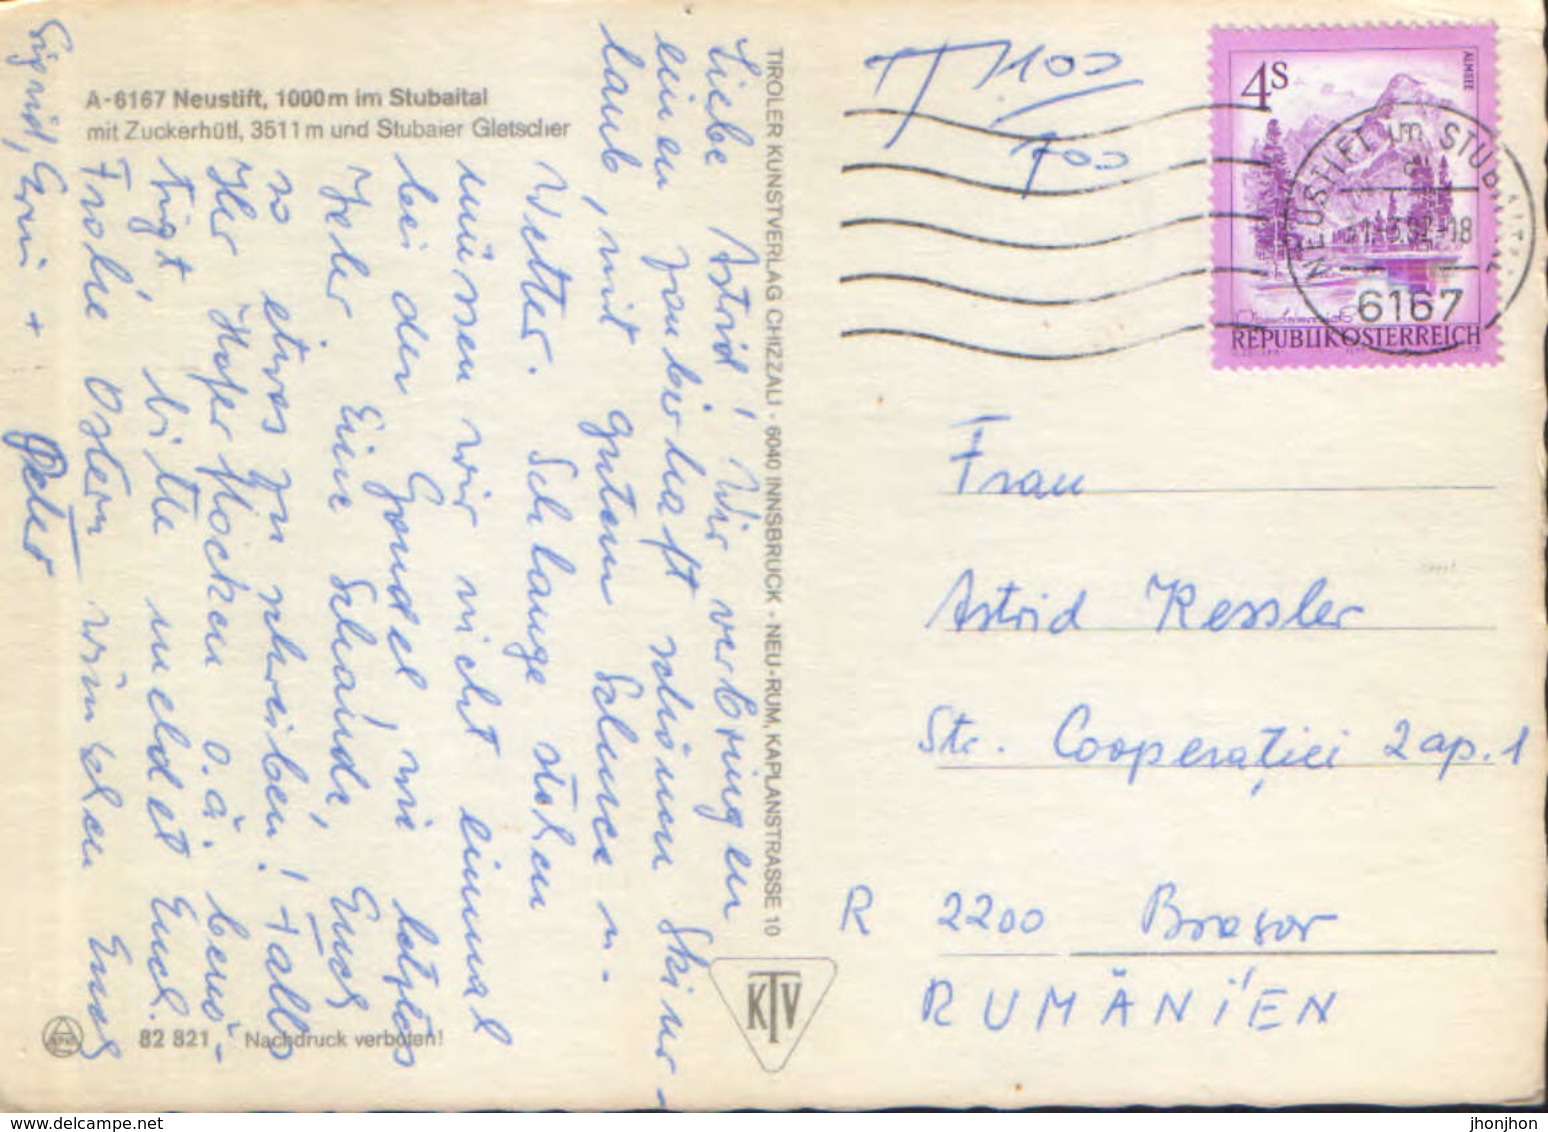 A-6167 Neustift, 1000 m im Stubaital
mit Zuckerhütl, 3511 m und Stubaier Gletscher
Liebe Astrid! Wir verbringen
einen zauberhaft schönen Skiur-
laub, mit gutem Schnee u.
Wetter. Schlange stehen
müssen wir nicht einmal
bei der Gondel, wie letztes
Jahr. Eine Schande, Euch
so etwas zu schreiben! Falls
Ihr Haferflocken o.ä. benö-
tigt, bitte meldet Euch.
Frohe Ostern wünschen Euch
Sigrid, + Peter
TIROLER KUNSTVERLAG CHIZZALI - 6040 INNSBRUCK - NEU-RUM, KAPLANSTRASSE 10
KTV
82 821 Nachdruck verboten!
4S
ALMSEE
REPUBLIK ÖSTERREICH
NEUSTIFT im STUBAITAL
-18
6167
Frau
Astrid Kessler
Str. Cooperaţiei 2 ap. 1
R 2200 Brasov
RUMÄNIEN
www.delcampe.net
jhonjhon